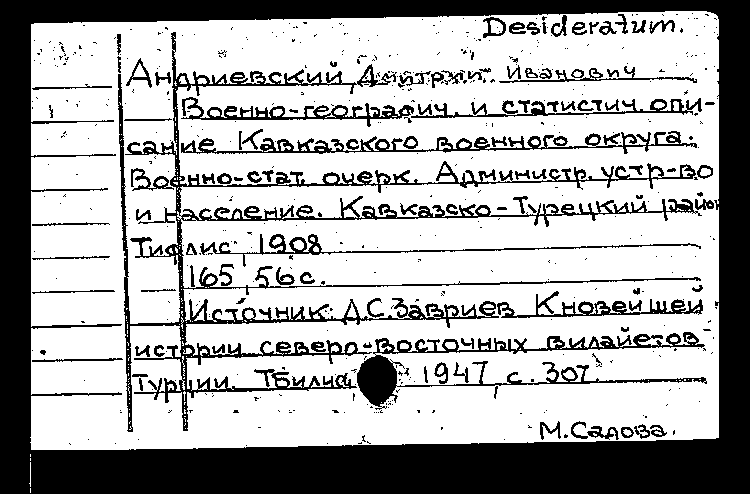 Desideratum.
Андриевский, Дмитрий Иванович
Военно-географич. и статистич. опи-
сание Кавказского военного округа.
Военно-стат. очерк. Администр. устр-во
и население. Кавказско-Турецкий район
Тифлис, 1908
165, 56 с.
Источник: Д.С. Завриев К новейшей
истории северо-восточных вилайетов
Турции. Тбилиси, 1947, с. 307.
М. Садова.